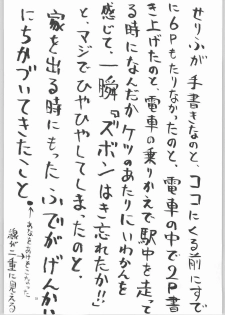 せりふが手書きなのと、ココにくる前にすで
に6Pもたりなかったのと、電車の中で2P書
き上げたのと、電車の乗りかえで駅中を走って
る時になんだかケツのあたりにいわかんを
感じて、一瞬『ズボンはき忘れたか!!』
と、マジでひやひやしてしまったのと、
家を出る時にもったふでがげんかい
にちかづいてきたこと。
↑あなをあけちゃった。
線が二重に見える